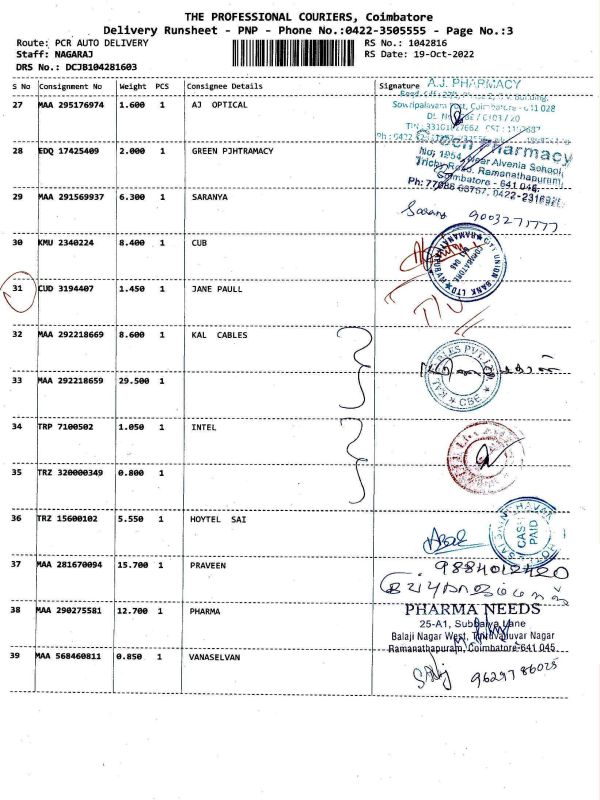 THE PROFESSIONAL COURIERS, Coimbatore
Delivery Runsheet - PNP - Phone No.:0422-3505555 - Page No.:3
Route: PCR AUTO DELIVERY RS No.: 1042816
Staff: NAGARAJ RS Date: 19-Oct-2022
DRS No.: DCJB104281603
S No Consignment No Weight PCS Consignee Details Signature
A.J. PHARMACY
27 MAA 295176974 1.600 1 AJ OPTICAL
Sowripalayam Post, Coimbatore - 641 028
28 EDQ 17425409 2.000 1 GREEN PJHTRAMACY
Pharmacy
No; 1954, Near Alvenia School,
Trichy Road, Ramanathapuram,
Coimbatore - 641 046.
29 MAA 291569937 6.300 1 SARANYA
9003271777
30 KMU 2340224 8.400 1 CUB
CITY UNION BANK LTD
COIMBATORE
31 CUD 3194407 1.450 1 JANE PAULL
32 MAA 292218669 8.600 1 KAL CABLES
KAL CABLES PVT. LTD.
CBE
33 MAA 292218659 29.500 1
34 TRP 7100502 1.050 1 INTEL
35 TRZ 320000349 0.800 1
36 TRZ 15600102 5.550 1 HOYTEL SAI
CASH
PAID
37 MAA 281670094 15.700 1 PRAVEEN
9884012420
38 MAA 290275581 12.700 1 PHARMA
PHARMA NEEDS
25-A1, Subbaiya Lane
Balaji Nagar West, Thiruvalluvar Nagar
Ramanathapuram, Coimbatore-641 045.
39 MAA 568460811 0.850 1 VANASELVAN
9629786025